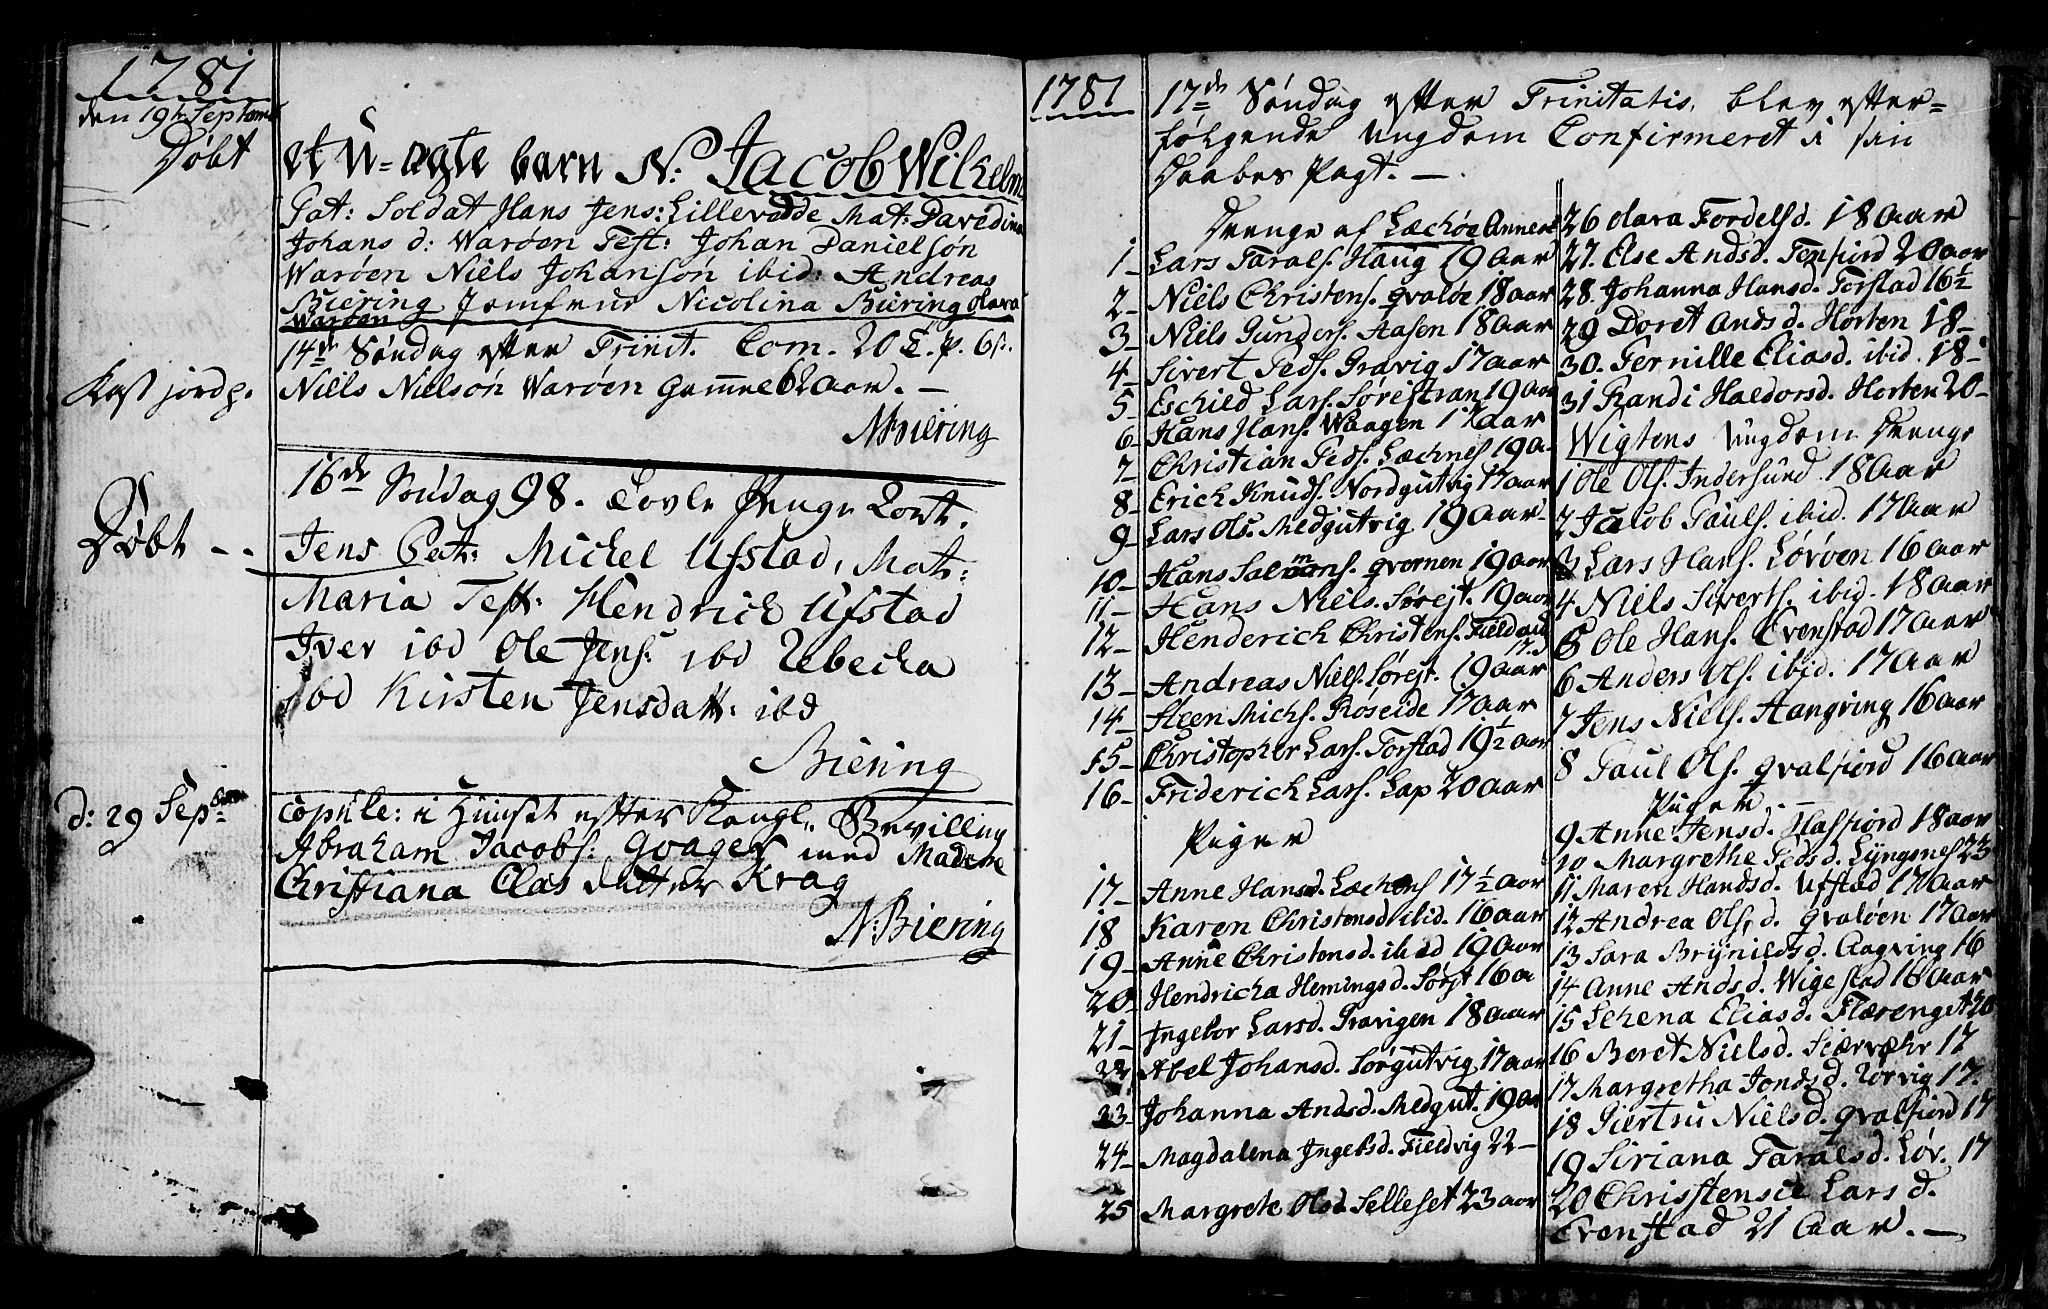 1781
den 19de Septemb
Døbt
et U=ægte barn N: Jacob Wilhelm
Pat: Soldat Hans Jens: Lillevadde Mat: Davedina
Johans d: Warøen Test: Johan Danielsøn
Warøen Niels Johansøn ibid: Andreas
Biering Jomfrue Nicolina Biering Olava
Warøen
14de Søndag efter Trinit. Com. 20
Kast jord p.
Niels Nielsøn Warøen Gamme 62 aar. —
N Biering
16de Søndag 98.
Døbt - -
Jens Pat: Michel Ufstad, Mat:
Maria Test: Hendrich Ufstad
Iver ibd Ole Jens: ibd Rebecka
ibd Kirsten Jensdatt: ibd
Biering
d: 29 Sepbr
copule: i Huuset efter Kongl. Bevilling
Abraham Jacobs: Qvager med Madame
Christiana Clas datter Krag
N: Biering
1781
17de Søndag efter Trinitatis, blev efter=
følgende Ungdom Confirmeret i sin
Daabes Pagt. —
Drenge af Læchøe Annexet
1- Lars Taralls. Haug 19 Aar
2- Niels Christens. qvaløe 18 aar
3- Niels Gunders. Aasen 18 Aar
4- Sivert Peds. Gravig 17 aar
5- Eschild Lars. Sørestran 19 Aar
6- Hans Hans. Waagen 17 Aar
7- Christian Peds. Læchnes 19 a-
8- Erich Knuds. Nordgutvig 17 aar
9- Lars Ols. Medgutvig 19 Aar-
10- Hans Salmons. qvernen 19 aar
11- Hans Niels. Sørest. 19 aar
12- Henderich Christens. Fieldvig
17 a
13- Andreas Niels. Sørest. 19 Aar
14- Steen Michs. Røseide 17 aar
15- Christopher Lars. Torstad 19 1/2 Aar
16- Friderich Lars. Lap 20 Aar
Piger
17- Anne Hansd. Læchens 17 1/2 aar
18 Karen Christensd ibid. 16 aar
19- Anne Christensd. ibid 19 Aar
20- Hendricha Hemingsd. Sørst 16 a
21- Ingebor Larsd. Gravigen 18 aar
22 Abel Johansd. Sørgutvig 17 aar
23- Johanna Andsd. Medgut. 19 aar
24- Magdalena Ingebsd. Fieldvig 22-
25 Margrete Olsd. Selleset 23 aar
26 Olava Fordelsd. 18 Aar
27. Else Andsd. Tenfiord 20 aar
28. Johanna Hansd. Torstad 16 1/2
29 Doret Ands d. Horten 18-
30. Pernille Eliasd. ibid. 18-
31 Randi Haldorsd. Horten 20-
Wigtens Ungdom Drenge
1 Ole Ols. Indersund 18 Aar
2 Jacob Pauls. ibid. 17 Aar
3 Lars Hans. Lørøen 16 Aar
4 Niels Siverts. ibid. 18 aar
5 Ole Hans. Evenstad 17 Aar
6 Anders Ols. ibid. 17 Aar
7 Jens Niels. Aangving 16 aar
8 Paul Ols. qvalfiord 16 aar
Piger. —
9 Anne Jensd. Hasfiord 18 aar
10 Margrethe Peds d. Lyngsnes 23
11 Maren Handsd. Ufstad 17 Aar
12 Andrea Ols. d. qvaløen 17 aar
13 Sara Brynildsd. Aagving 16
14 Anne Andsd. Wigestad 16 Aar
15 Lehena Eliasd. Flærenget 20
16 Beret Nielsd. Siærvæhr 17
17 Margretha Jonds d. Rørvig 17.
18 Giertru Niels d. qvalfiord 17
19 Siriana Taralsd. Løv. 17
20 Christense Lars d.
Evenstad 21 Aar. —